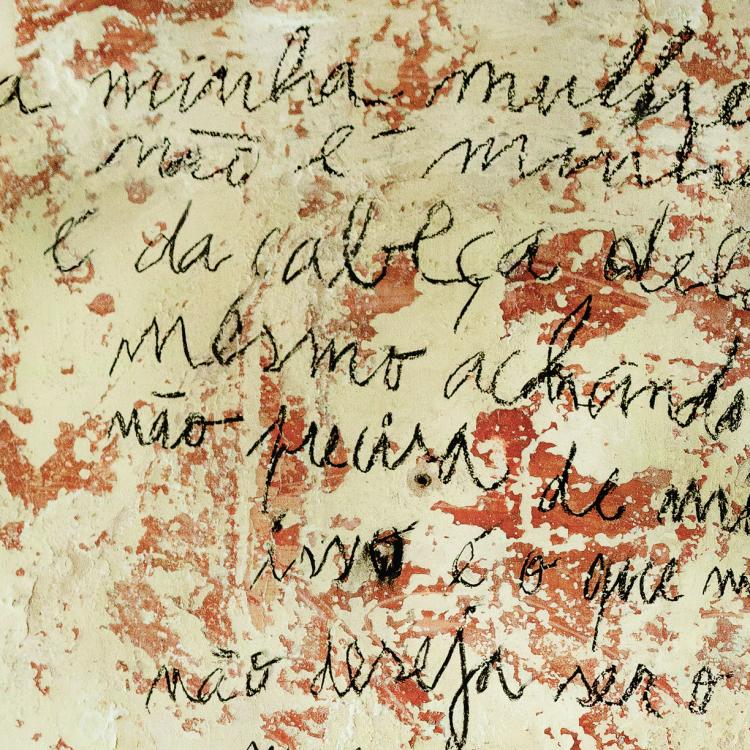 a minha mulhe
não é minh
é da cabeça del
mesmo achando
não precisa de mi
isso é o que m
não deseja ser o